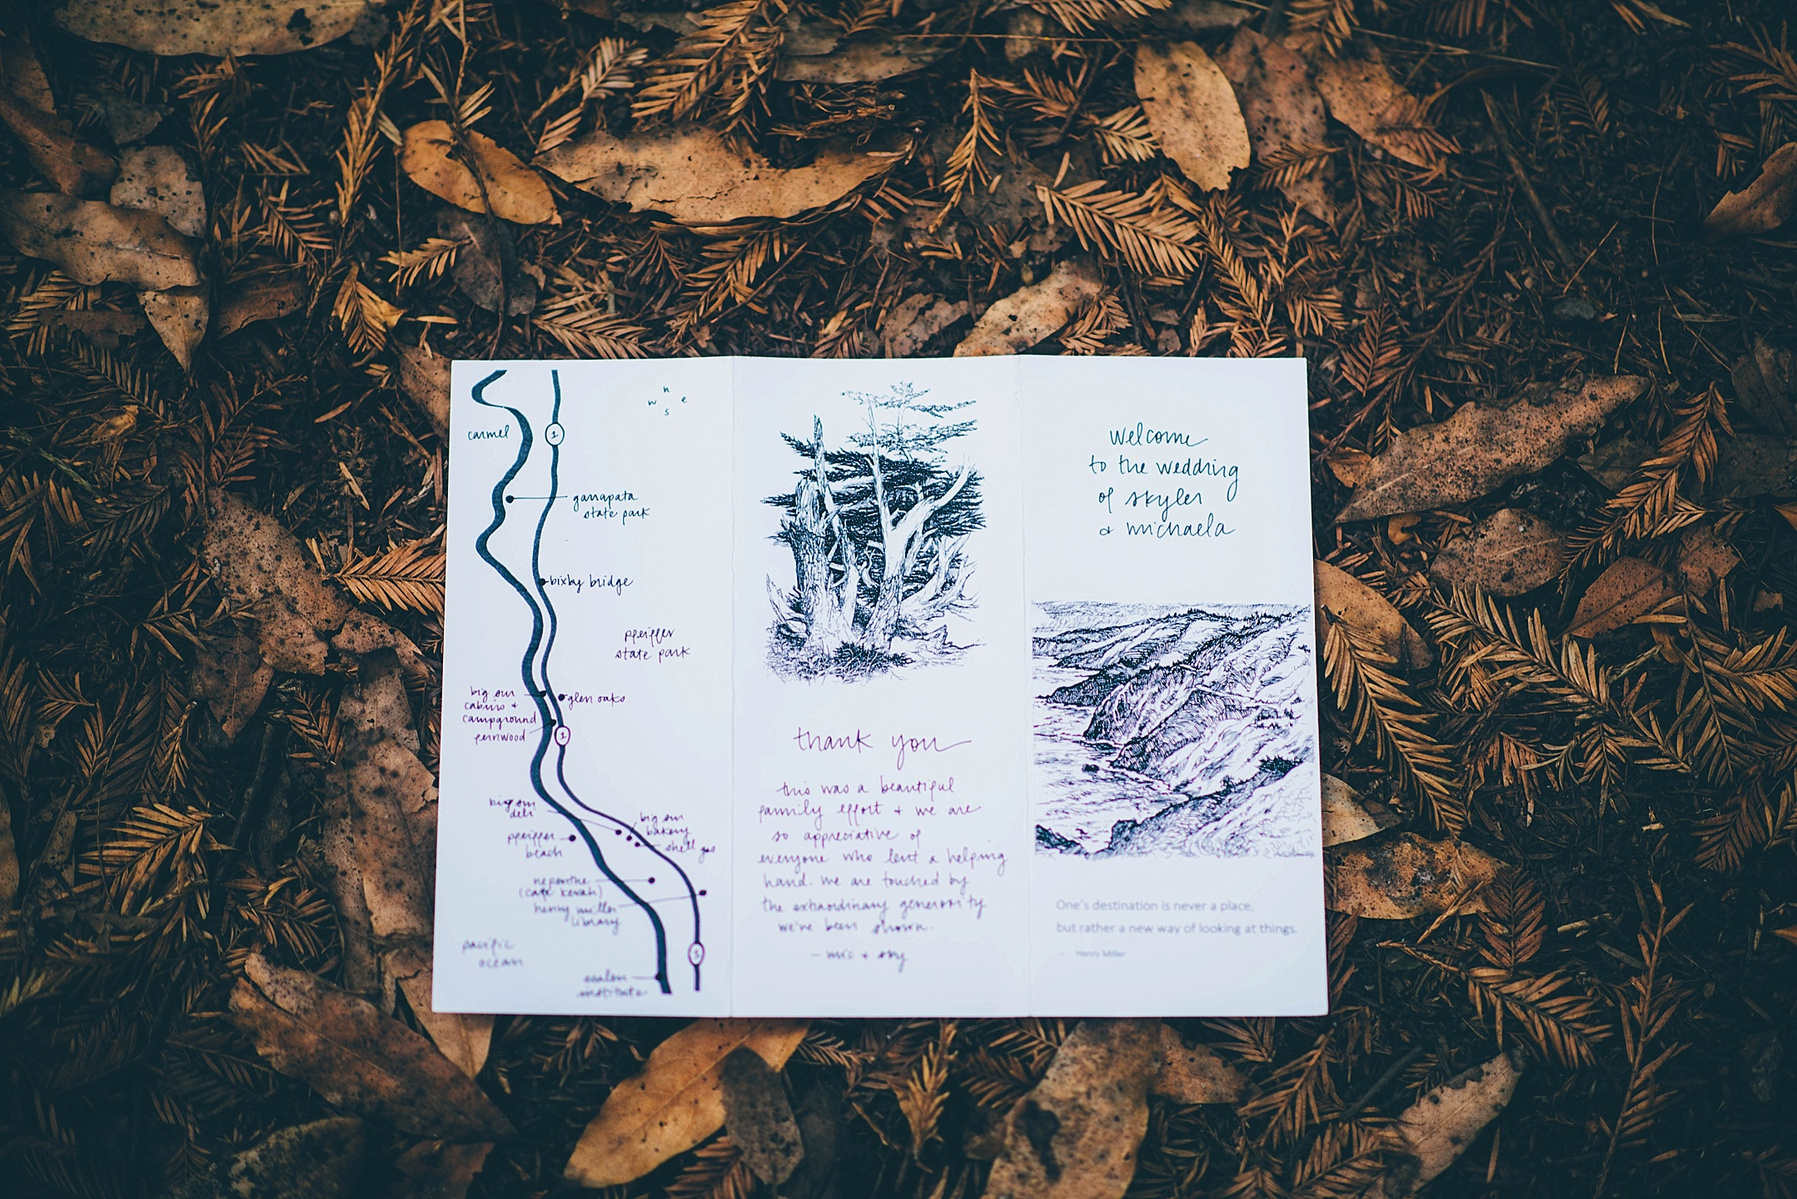 n
w e
s
carmel
1
garrapata
state park
bixby bridge
pfeiffer
state park
big sur
cabins +
campground
fernwood
glen oaks
1
big sur
deli
big sur
bakery
shell gas
pfeiffer
beach
nepenthe
(cafe kevah)
henry miller
library
1
pacific
ocean
esalen
institute
thank you
this was a beautiful
family effort + we are
so appreciative of
everyone who lent a helping
hand. we are touched by
the extraordinary generosity
we've been shown.
- mic + sky
welcome
to the wedding
of skyler
& michaela
One's destination is never a place,
but rather a new way of looking at things.
- Henry Miller